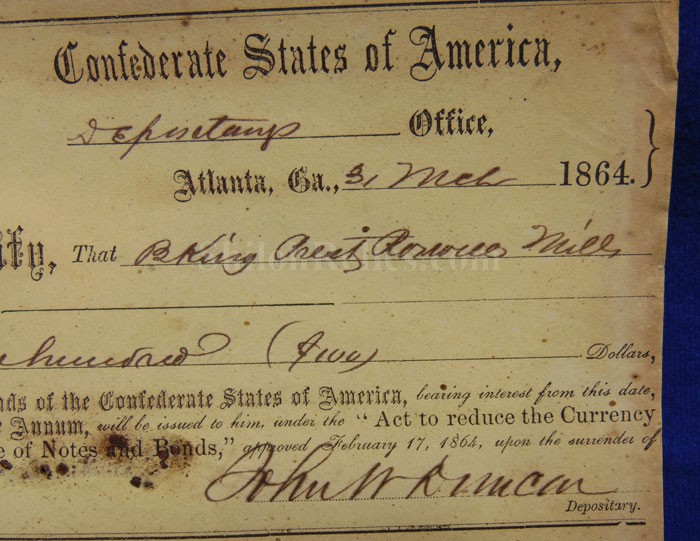 Confederate States of America,
Depositary Office,
Atlanta, Ga., 31 Mch 1864.}
ify, That B King Prest Roswell Mills
ShilohRelics.com
hundred (two) Dollars,
nds of the Confederate States of America, bearing interest from this date,
r Annum, will be issued to him, under the "Act to reduce the Currency
e of Notes and Bonds," approved February 17, 1864, upon the surrender of
John W Duncan
Depositary.